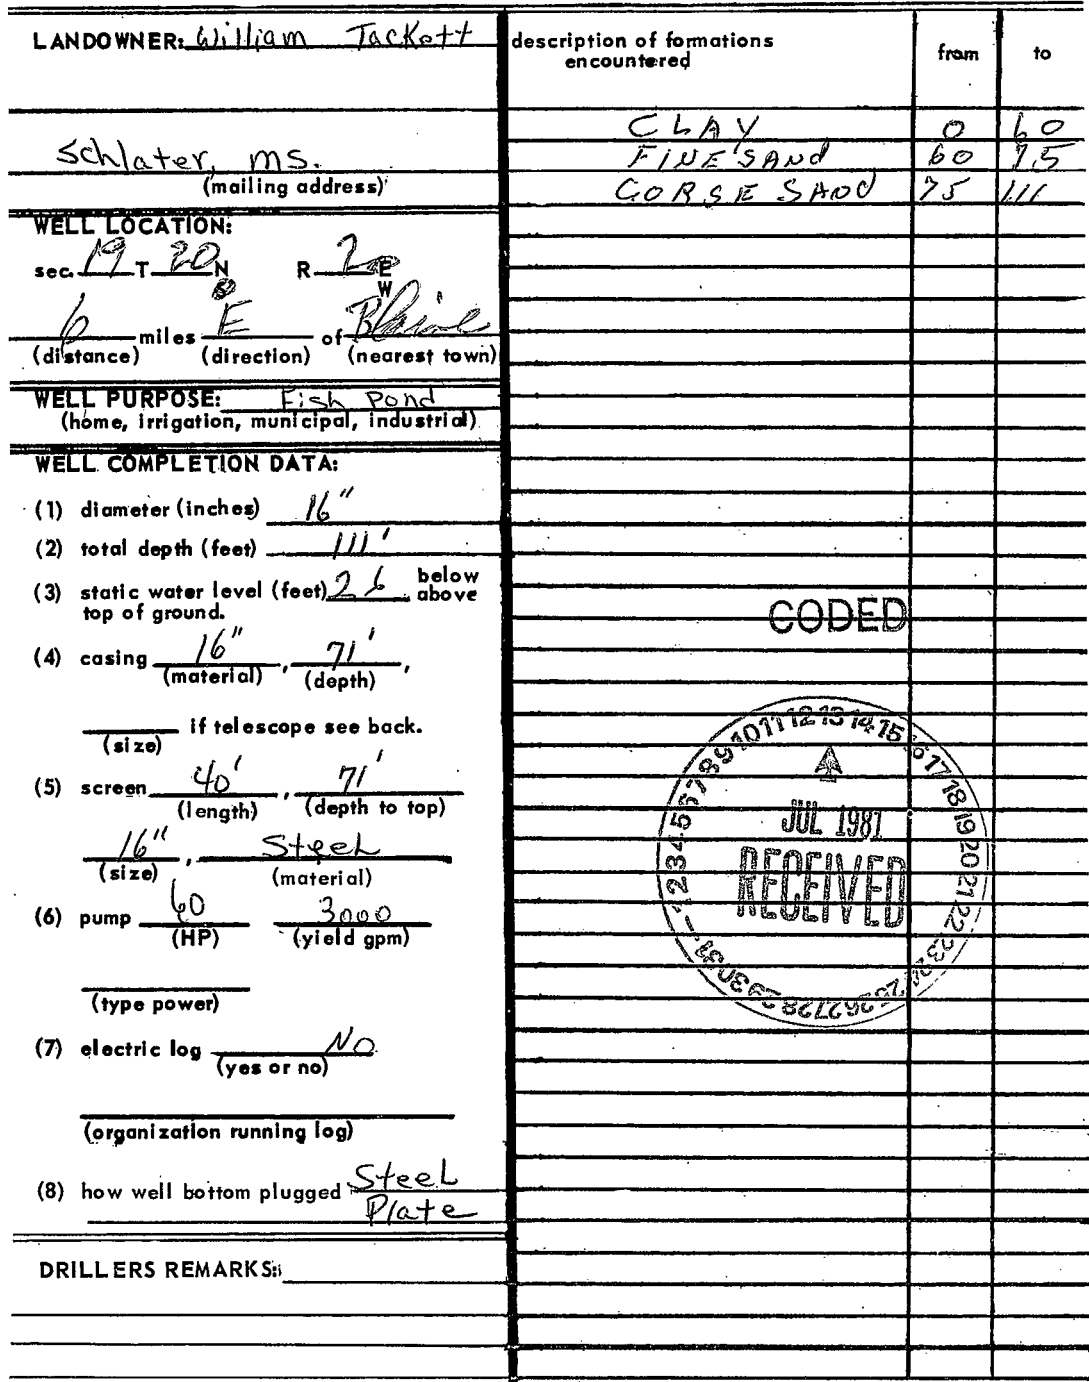 LANDOWNER: William Tackett
Schlater, ms.
(mailing address)
WELL LOCATION:
sec. 19 T 20 N R 2 E
S W
6 miles E of Blaine
(distance) (direction) (nearest town)
WELL PURPOSE: Fish Pond
(home, irrigation, municipal, industrial)
WELL COMPLETION DATA:
(1) diameter (inches) 16"
(2) total depth (feet) 111'
(3) static water level (feet) 26 below
above
top of ground.
(4) casing 16", 71',
(material) (depth)
if telescope see back.
(size)
(5) screen 40', 71'
(length) (depth to top)
16", Steel
(size) (material)
(6) pump 60 3000
(HP) (yield gpm)
(type power)
(7) electric log NO
(yes or no)
(organization running log)
(8) how well bottom plugged Steel
Plate
DRILLERS REMARKS:
description of formations
encountered
from to
CLAY 0 60
FINE SAND 60 75
CORSE SAND 75 111
CODED
1 2 3 4 5 6 7 8 9 10 11 12 13 14 15 16 17 18 19 20 21 22 23 24 25 26 27 28 29 30 31
JUL 1981
RECEIVED